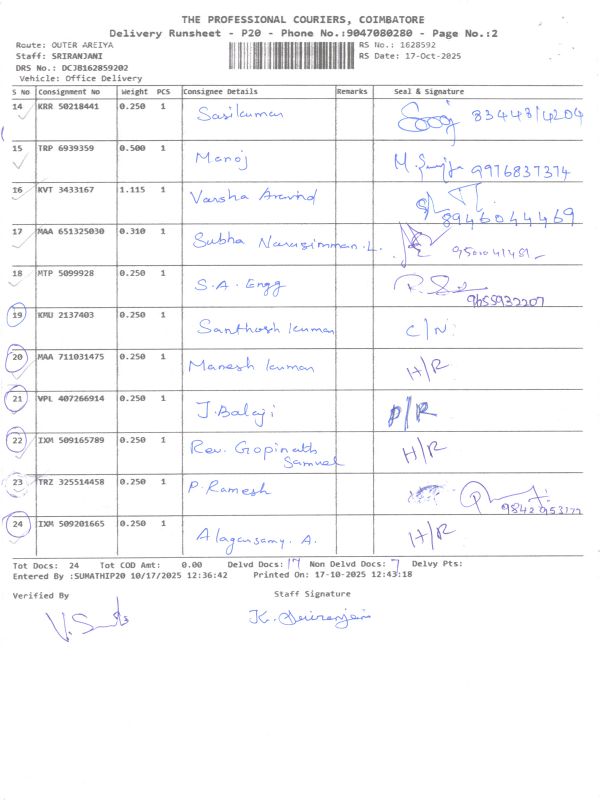 THE PROFESSIONAL COURIERS, COIMBATORE
Delivery Runsheet - P20 - Phone No.:9047080280 - Page No.:2
Route: OUTER AREIYA RS No.: 1628592
Staff: SRIRANJANI RS Date: 17-Oct-2025
DRS No.: DCJB162859202
Vehicle: Office Delivery
S No Consignment No Weight PCS Consignee Details Remarks Seal & Signature
14 KRR 50218441 0.250 1 Sasikumar 83448/4204
15 TRP 6939359 0.500 1 Manoj 9976837374
16 KVT 3433167 1.115 1 Varsha Aravind 8946044469
17 MAA 651325030 0.310 1 Subha Narasimman.L.
18 MTP 5099928 0.250 1 S.A. Engg 9655932207
19 KMU 2137403 0.250 1 Santhosh kumar C/N
20 MAA 711031475 0.250 1 Manesh kumar H/R
21 VPL 407266914 0.250 1 J.Balaji P/R
22 IXM 509165789 0.250 1 Rev. Gopinath Samuel H/R
23 TRZ 325514458 0.250 1 P.Ramesh
24 IXM 509201665 0.250 1 Alagarsamy. A. H/R
Tot Docs: 24 Tot COD Amt: 0.00 Delvd Docs: 17 Non Delvd Docs: 7 Delvy Pts:
Entered By :SUMATHIP20 10/17/2025 12:36:42 Printed On: 17-10-2025 12:43:18
Verified By Staff Signature
K. Sriranjani